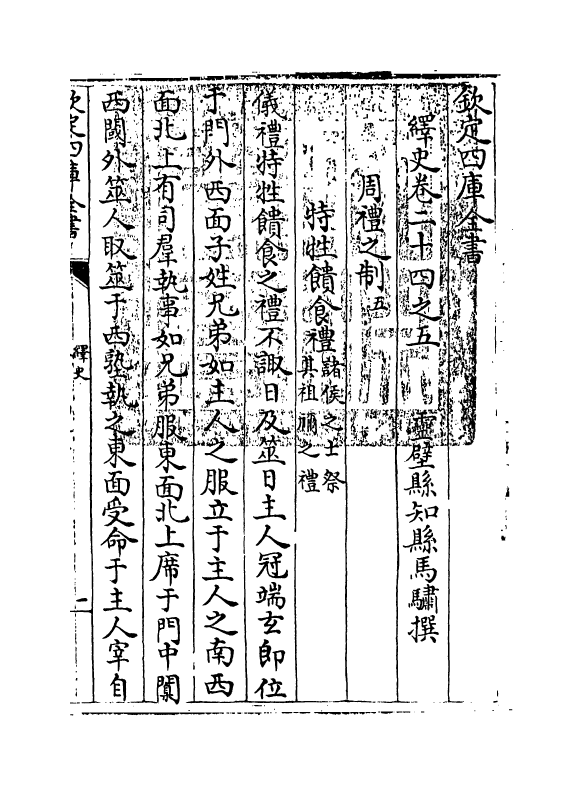 欽定四庫全書
繹史卷二十四之五
靈壁縣知縣馬驌撰
周禮之制五
特牲饋食禮諸侯之士祭
其祖禰之禮
儀禮特牲饋食之禮不諏日及筮日主人冠端玄即位
于門外西面子姓兄弟如主人之服立于主人之南西
面北上有司羣執事如兄弟服東面北上席于門中闑
西閾外筮人取筮于西塾執之東面受命于主人宰自
欽定四庫全書
繹史